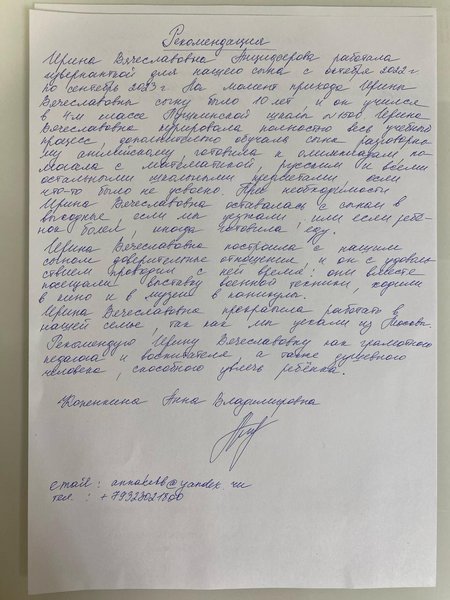 Рекомендация
Ирина Вячеславовна работала
гувернанткой для нашего сына с октября 2022г
по сентябрь 2023г. На момент прихода Ирины
Вячеславовны сыну было 10 лет и он учился
в 4-м классе Пушкинской школы № 1500. Ирина
Вячеславовна курировала полностью весь учебный
процесс, дополнительно обучала сына разговорно-
му английскому, готовила к олимпиадам, по-
могала с математикой, русским и всеми
остальными школьными предметами если
что-то было не усвоено. При необходимости
Ирина Вячеславовна оставалась с сыном в
выходные, если мы уезжали, или если ребе-
нок болел, иногда готовила еду.
Ирина Вячеславовна построила с нашим
сыном доверительные отношения, и он с удоволь-
ствием проводил с ней время: они вместе
посещали выставку военной техники, ходили
в кино и в музеи в каникулы.
Ирина Вячеславовна прекратила работать в
нашей семье, так как мы уехали из Москвы.
Рекомендую Ирину Вячеславовну как грамотного
педагога и воспитателя, а также душевного
человека, способного увлечь ребёнка.
Копенкина Анна Владимировна
email: @yandex.ru
тел.: +79323021860